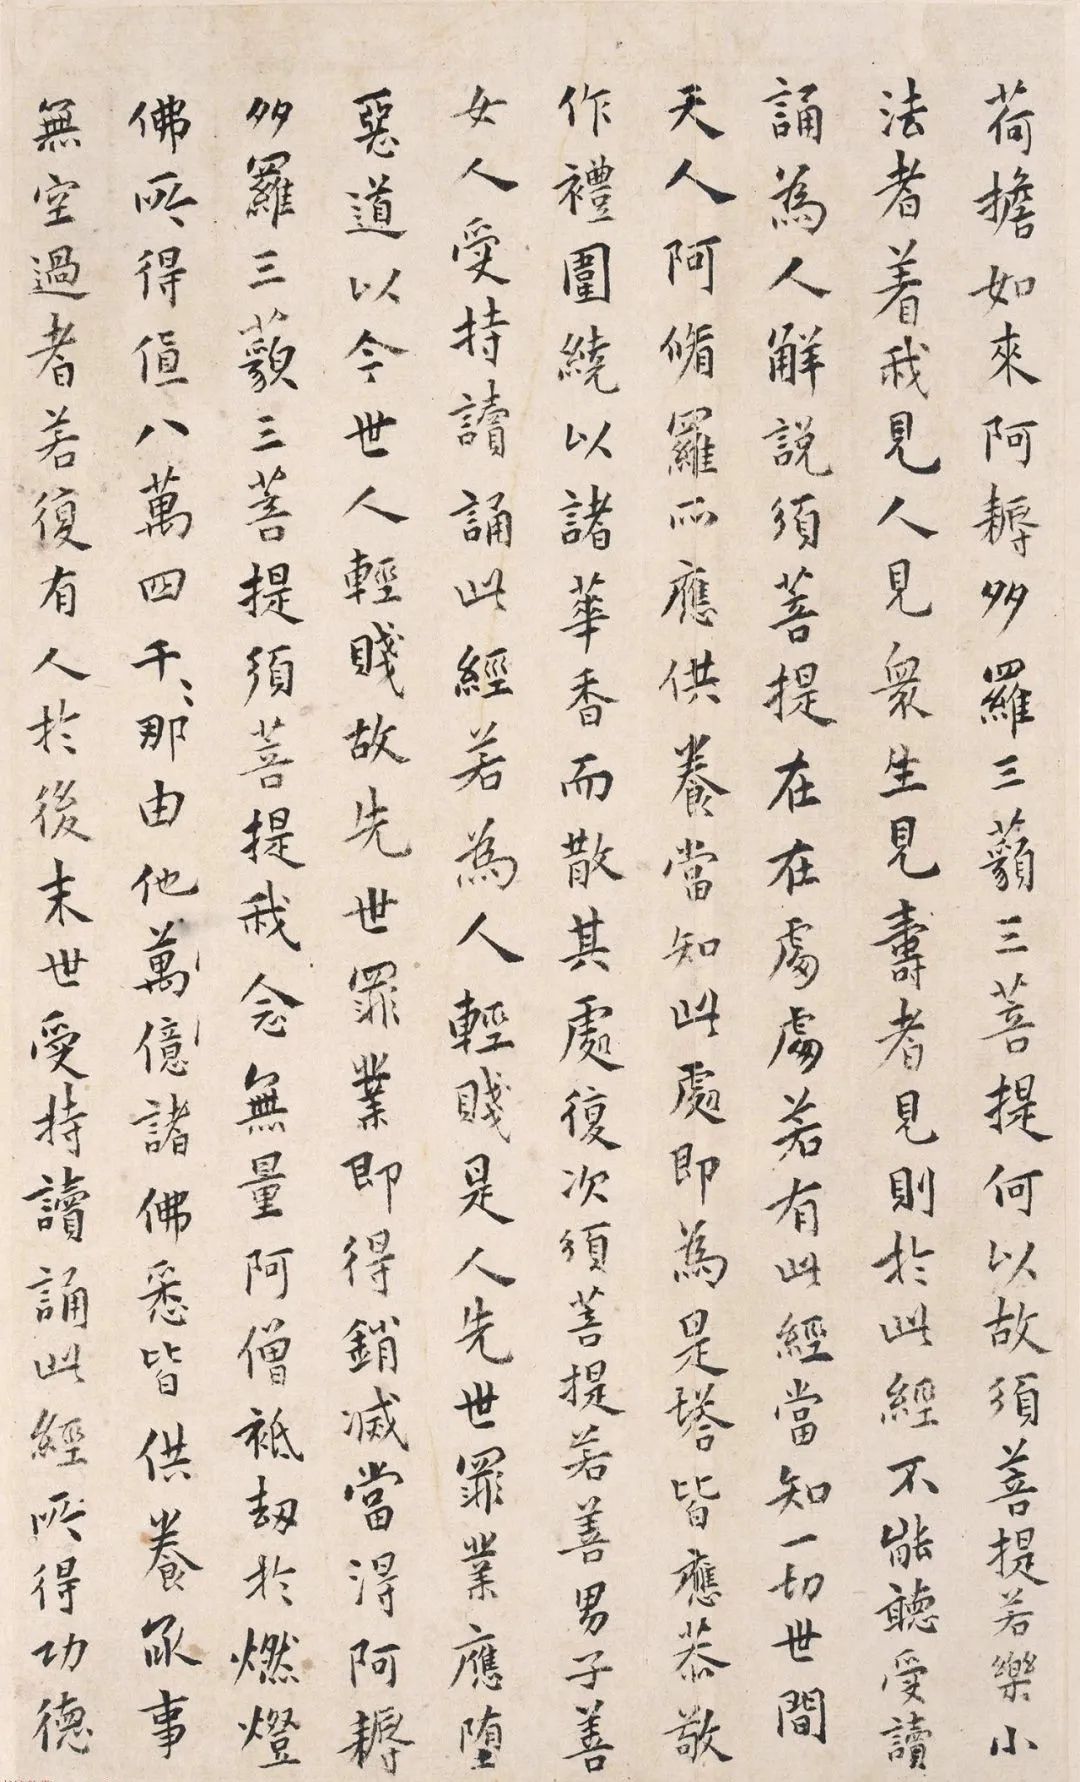 荷擔如來阿耨多羅三藐三菩提何以故須菩提若樂小
法者着我見人見衆生見壽者見則於此經不能聽受讀
誦為人解説須菩提在在處處若有此經當知一切世間
天人阿脩羅所應供養當知此處即為是塔皆應恭敬
作禮圍繞以諸華香而散其處復次須菩提若善男子善
女人受持讀誦此經若為人輕賤是人先世罪業應堕
惡道以今世人輕賤故先世罪業即得銷滅當得阿耨
多羅三藐三菩提須菩提我念無量阿僧祇劫於燃燈
佛所得值八萬四千〻那由他萬億諸佛悉皆供養承事
無空過者若復有人於後末世受持讀誦此經所得功德